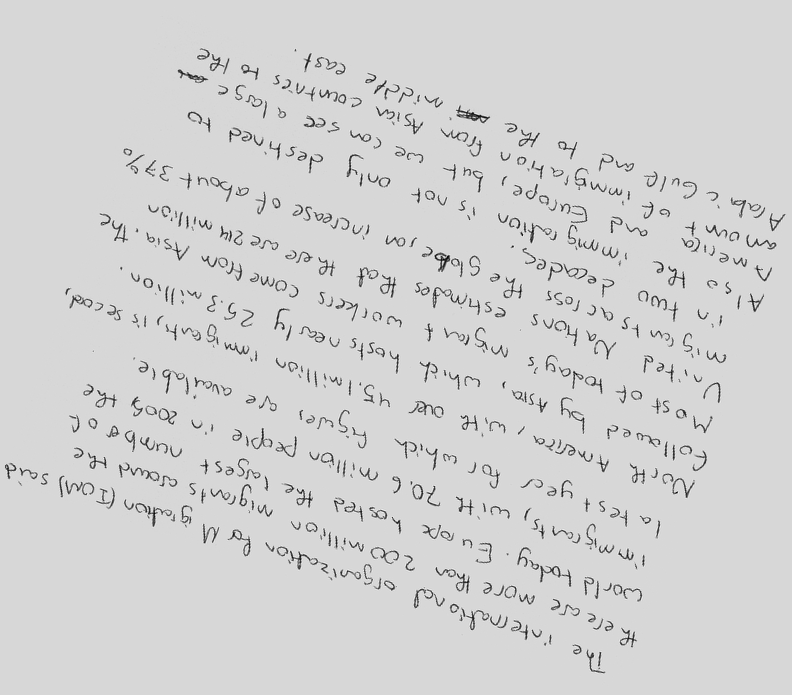 The international organization for Migration (IOM) said
there are more than 200 million migrants around the
world today. Europe hosted the largest number of
immigrants, with 70.6 million people in 2005, the
latest year for which figures are available.
North America, with over 45.1 million immigrants, is second,
followed by Asia, which hosts nearly 25.3 million.
Most of today's migrant workers come from Asia. The
United Nations estimates that there are 214 million
migrants across the globe, an increase of about 37%
in two decades.
Also the immigration is not only destined to
America and Europe, but we can see a large
amount of immigration from Asian countries to the
Arabic Gulf and to the middle east.